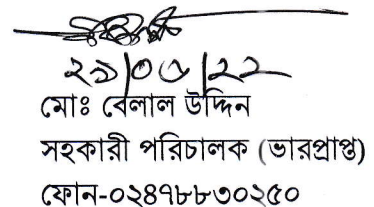 ২৯/০৫/২২
মোঃ বেলাল উদ্দিন
সহকারী পরিচালক (ভারপ্রাপ্ত)
ফোন-০২৪৭৮৮৩০২৫০